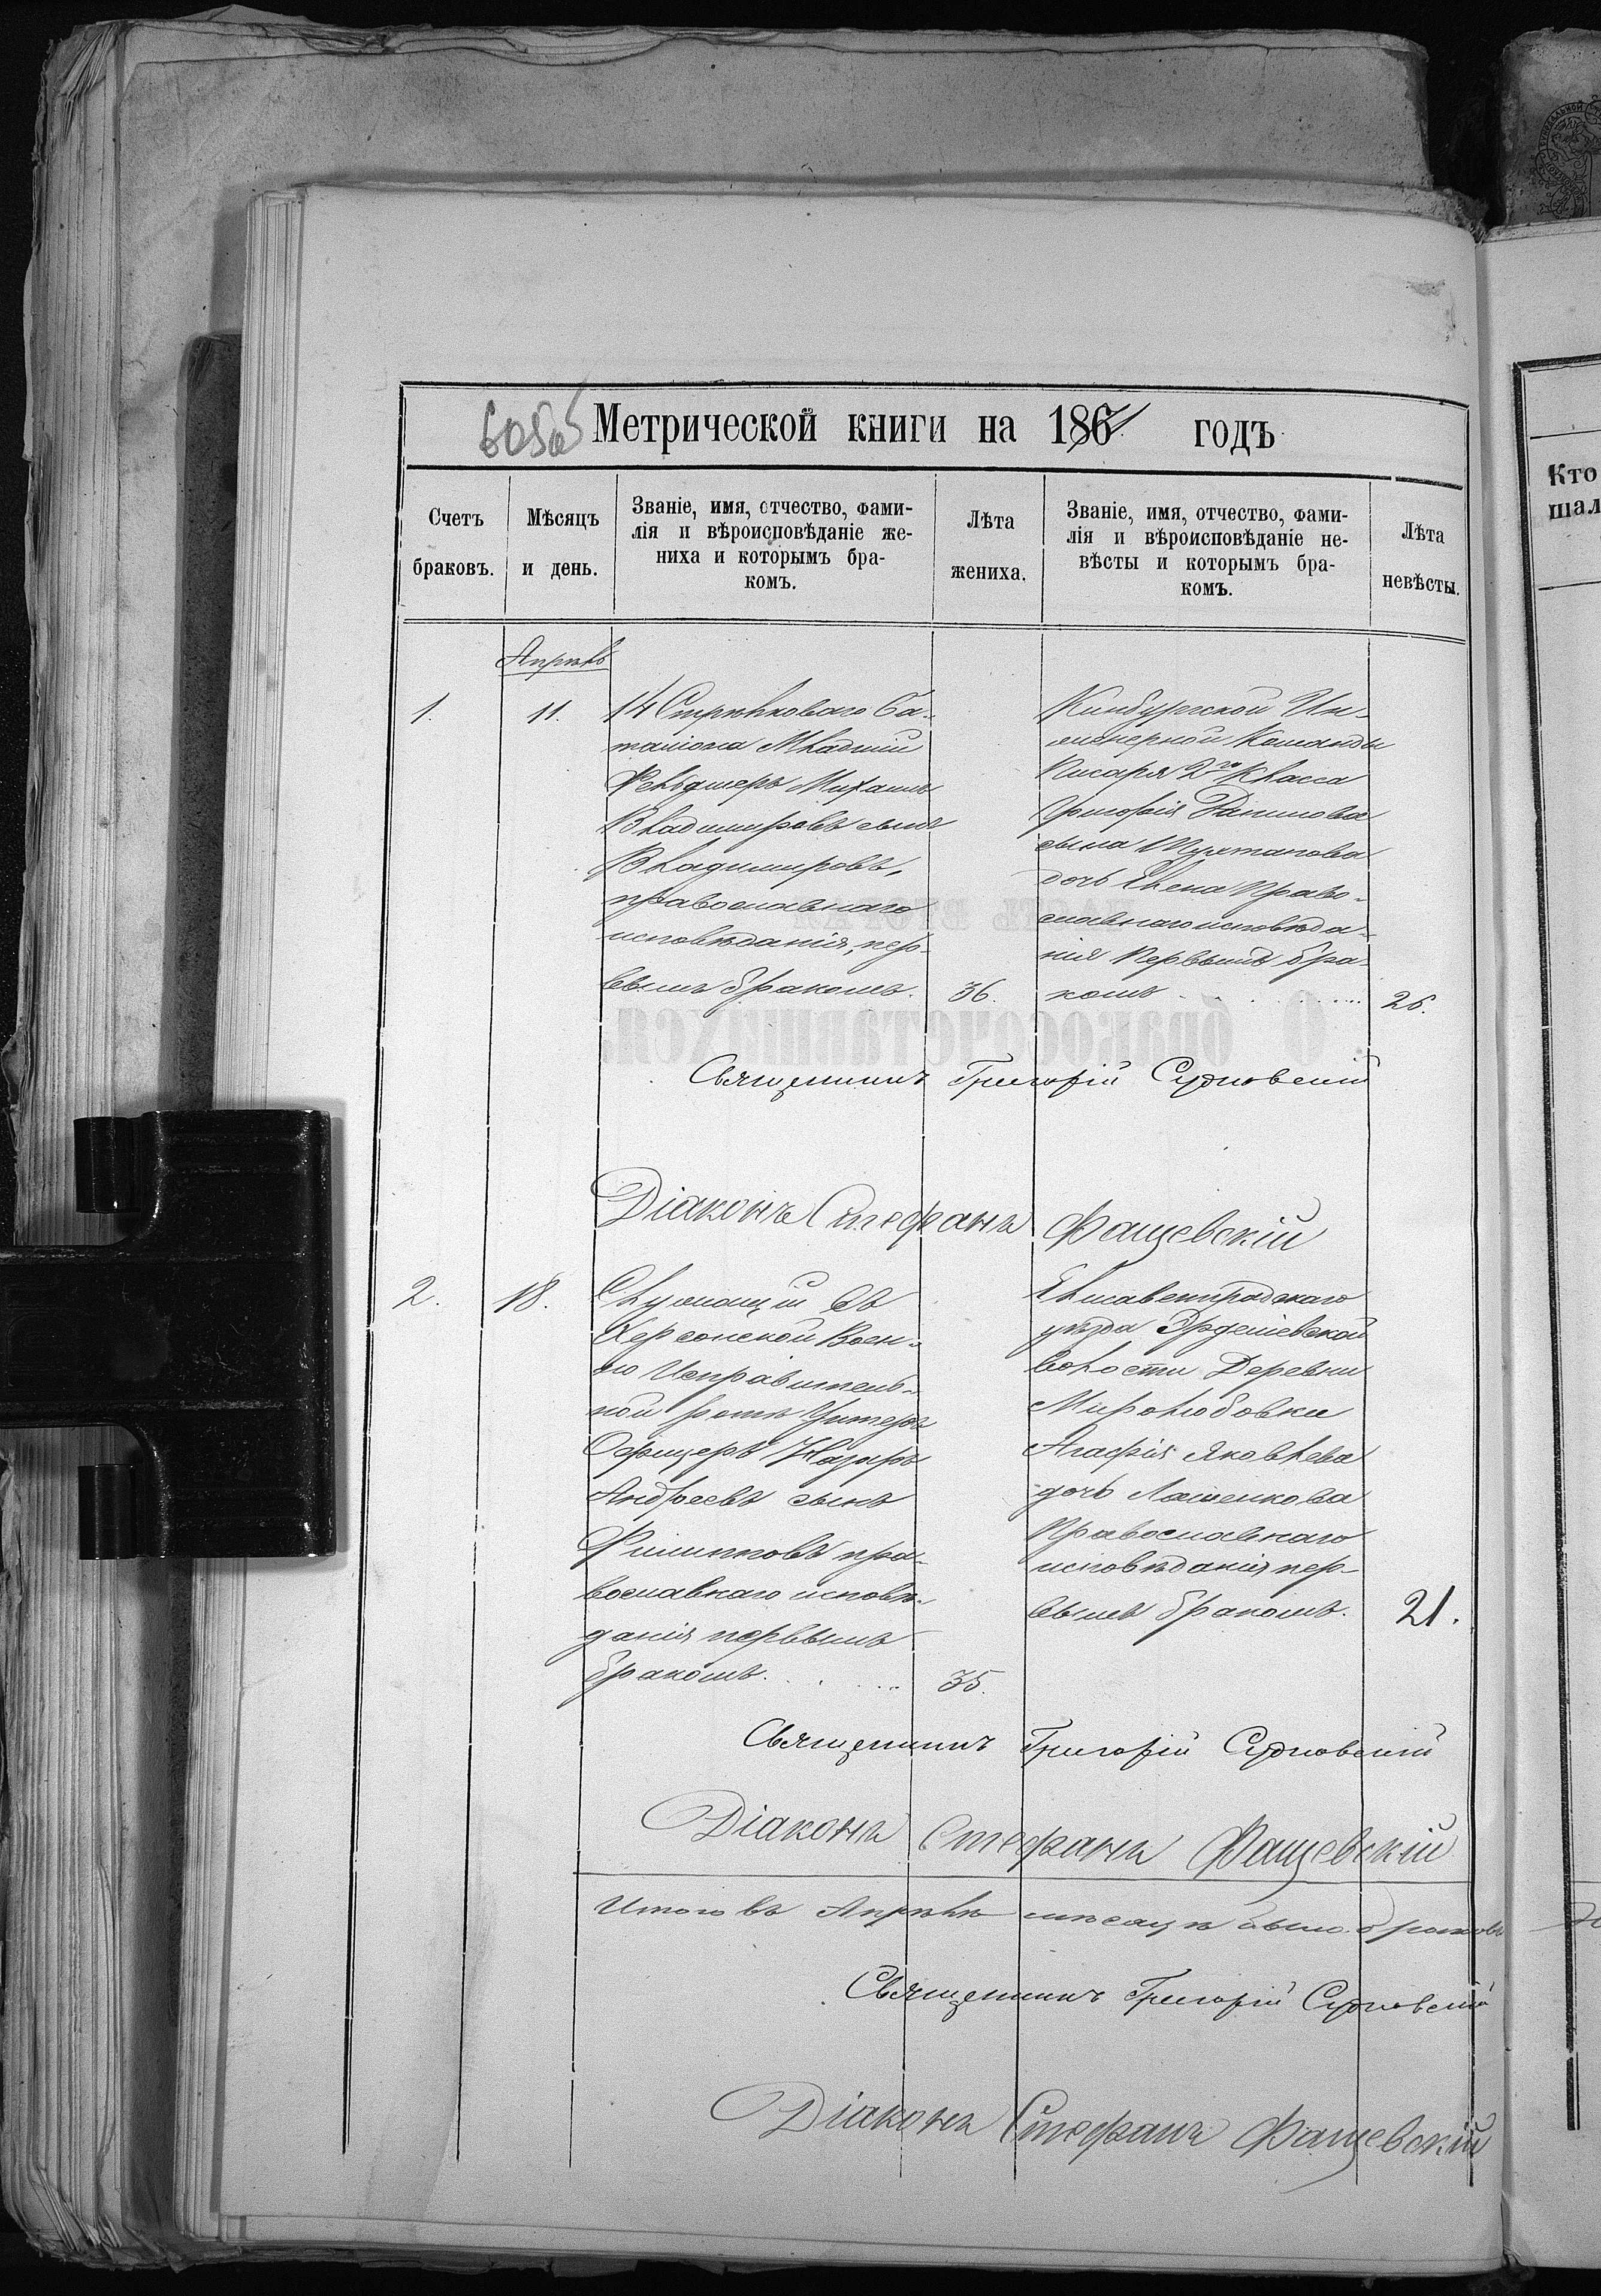 Метрической книги на 186 годъ
Счетъ браковъ.
Мѣсяцъ и день.
Званіе, имя, отчество, фами-
лія и вѣроисповѣданіе же-
ниха и которымъ бра-
комъ.
Лѣта жениха.
Званіе, имя, отчество, фами-
лія и вѣроисповѣданіе не-
вѣсты и которымъ бра-
комъ.
Лѣта невѣсты.
Кто
шал
Апрѣль
1.
11.
14 Стрѣлковаго Ба-
таліона Младшій
Фельдшеръ Михаилъ
Владимировъ сынъ
Владимировъ,
православнаго
исповѣданія, пер-
вымъ бракомъ.
36.
Кинбургской Ин-
женерной Команды
Писаря 2го Класса
Григорія Данилова
сына
дочь Елена Право-
славнаго исповѣда-
нія Первымъ бра-
комъ
26.
Священникъ Григорій Судковскій
Діаконъ Стефанъ Фащевскій
2.
18.
Служащій въ
Херсонской Воен-
но Исправитель-
ной ротѣ Унтеръ
Офицеръ Назаръ
Андреевъ сынъ
Филиповъ пра-
вославнаго исповѣ-
данія первымъ
бракомъ.
35.
Елисаветградскаго
уѣзда Эрделіевской
волости Деревни
Миролюбовки
Агафія Яковлева
дочь Лашенкова
Православнаго
исповѣданія пер-
вымъ бракомъ.
21.
Священникъ Григорій Судковскій
Діаконъ Стефанъ Фащевскій
Итого въ Апрѣлѣ мѣсяцѣ было браковъ
Священникъ Григорій Судковскій
Діаконъ Стефанъ Фащевскій